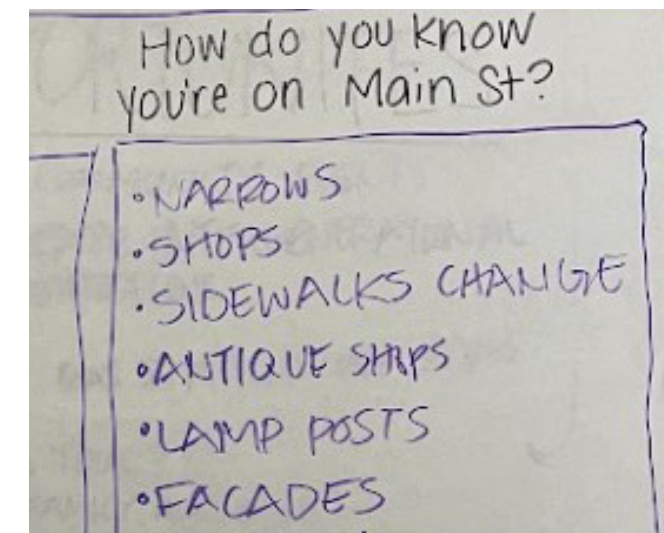 How do you know
you're on Main St?
• NARROWS
• SHOPS
• SIDEWALKS CHANGE
• ANTIQUE SHOPS
• LAMP POSTS
• FACADES